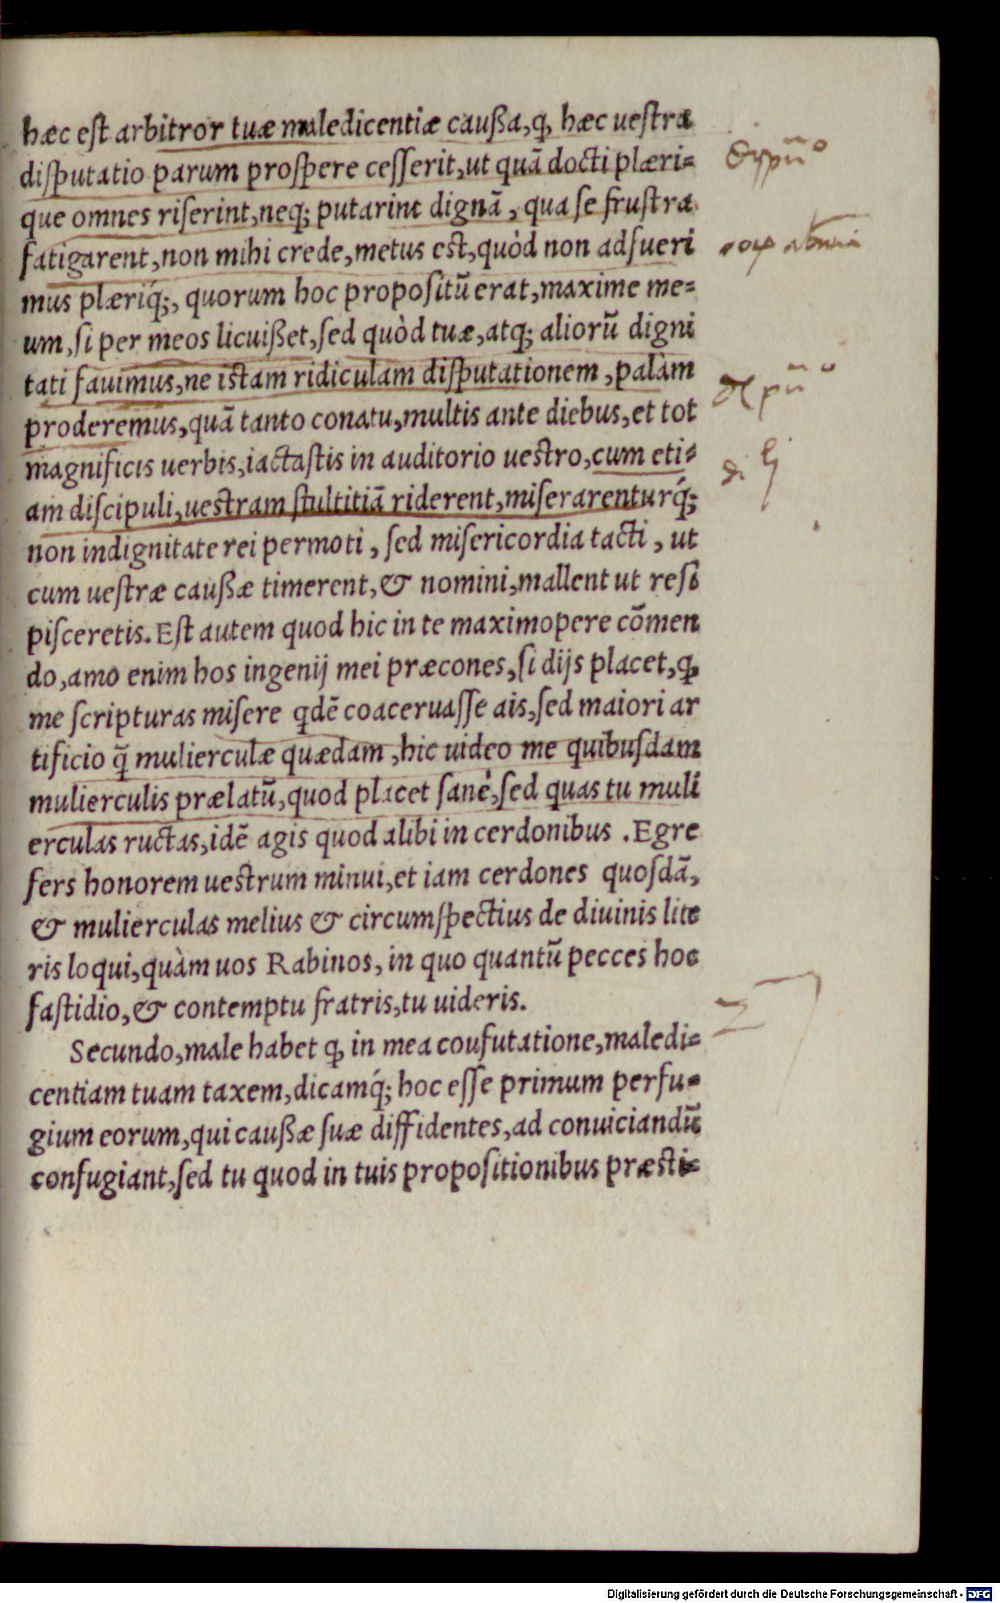 hæc est arbitror tuæ maledicentiæ caußa, ꝙ hæc uestra
disputatio parum prospere cesserit, ut quā docti plæri-
que omnes riserint, neqꝫ putarint dignā, qua se frustra
fatigarent, non mihi crede, metus est, quòd non adsueri
mus plæriq́ꝫ, quorum hoc propositū erat, maxime me-
um, si per meos licuißet, sed quòd tuæ, atqꝫ aliorū digni
tati fauimus, ne istam ridiculam disputationem, palàm
proderemus, quā tanto conatu, multis ante diebus, et tot
magnificis uerbis, iactastis in auditorio uestro, cum eti-
am discipuli, uestram stultitiā riderent, miserarenturq́ꝫ
non indignitate rei permoti, sed misericordia tacti, ut
cum uestræ caußæ timerent, & nomini, mallent ut resi
pisceretis. Est autem quod hic in te maximopere cōmen
do, amo enim hos ingenij mei præcones, si dijs placet, ꝙ
me scripturas misere qdē coaceruasse ais, sed maiori ar
tificio q̄ mulierculæ quædam, hic uideo me quibusdam
mulierculis prælatū, quod placet sanè, sed quas tu muli
erculas ructas, idē agis quod alibi in cerdonibus. Egre
fers honorem uestrum minui, et iam cerdones quosdā,
& mulierculas melius & circumspectius de diuinis lite
ris loqui, quàm uos Rabinos, in quo quantū pecces hoc
fastidio, & contemptu fratris, tu uideris.
Secundo, male habet ꝙ in mea coufutatione, maledi-
centiam tuam taxem, dicamq́ꝫ hoc esse primum perfu-
gium eorum, qui caußæ suæ diffidentes, ad conuiciandū
confugiant, sed tu quod in tuis propositionibus præsti-
Digitalisierung gefördert durch die Deutsche Forschungsgemeinschaft - DFG